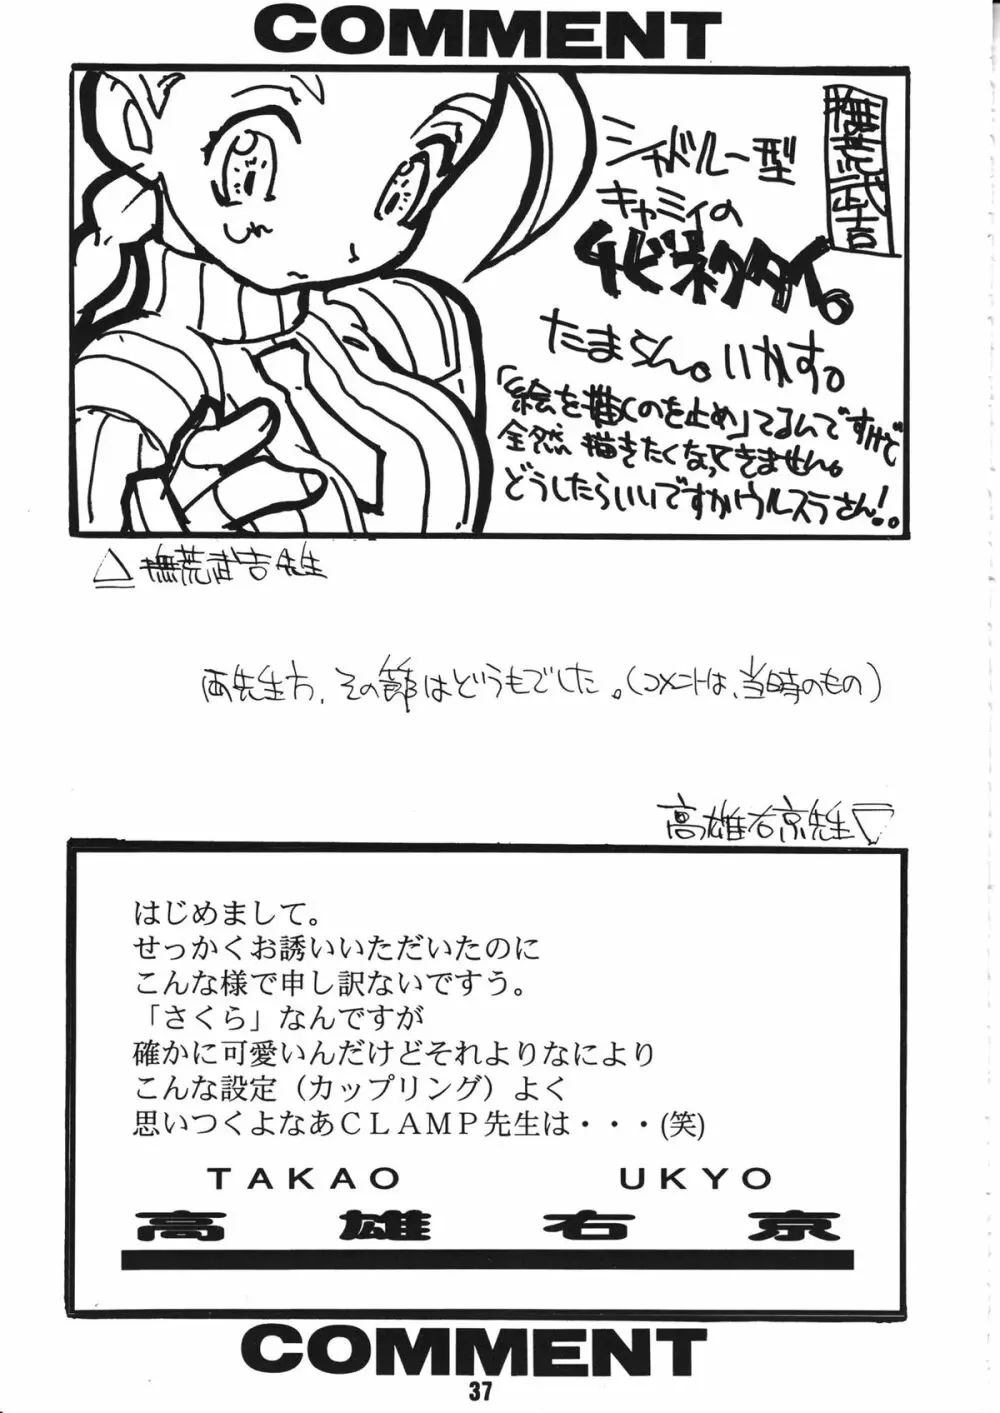 COMMENT
撫荒武吉
シャドルー型
キャミィの
チビネクタイ。
たまらん。いかす。
「絵を描くのを止め」てるんですけど
全然描きたくなってきません。
どうしたらいいですかウルスラさん!!
△撫荒武吉先生
両先生方、その節はどうもでした。(コメントは、当時のもの)
高雄右京先生▽
はじめまして。
せっかくお誘いいただいたのに
こんな様で申し訳ないですう。
「さくら」なんですが
確かに可愛いんだけどそれよりなにより
こんな設定（カップリング）よく
思いつくよなあＣＬＡＭＰ先生は・・・(笑)
TAKAO UKYO
高雄右京
COMMENT
37